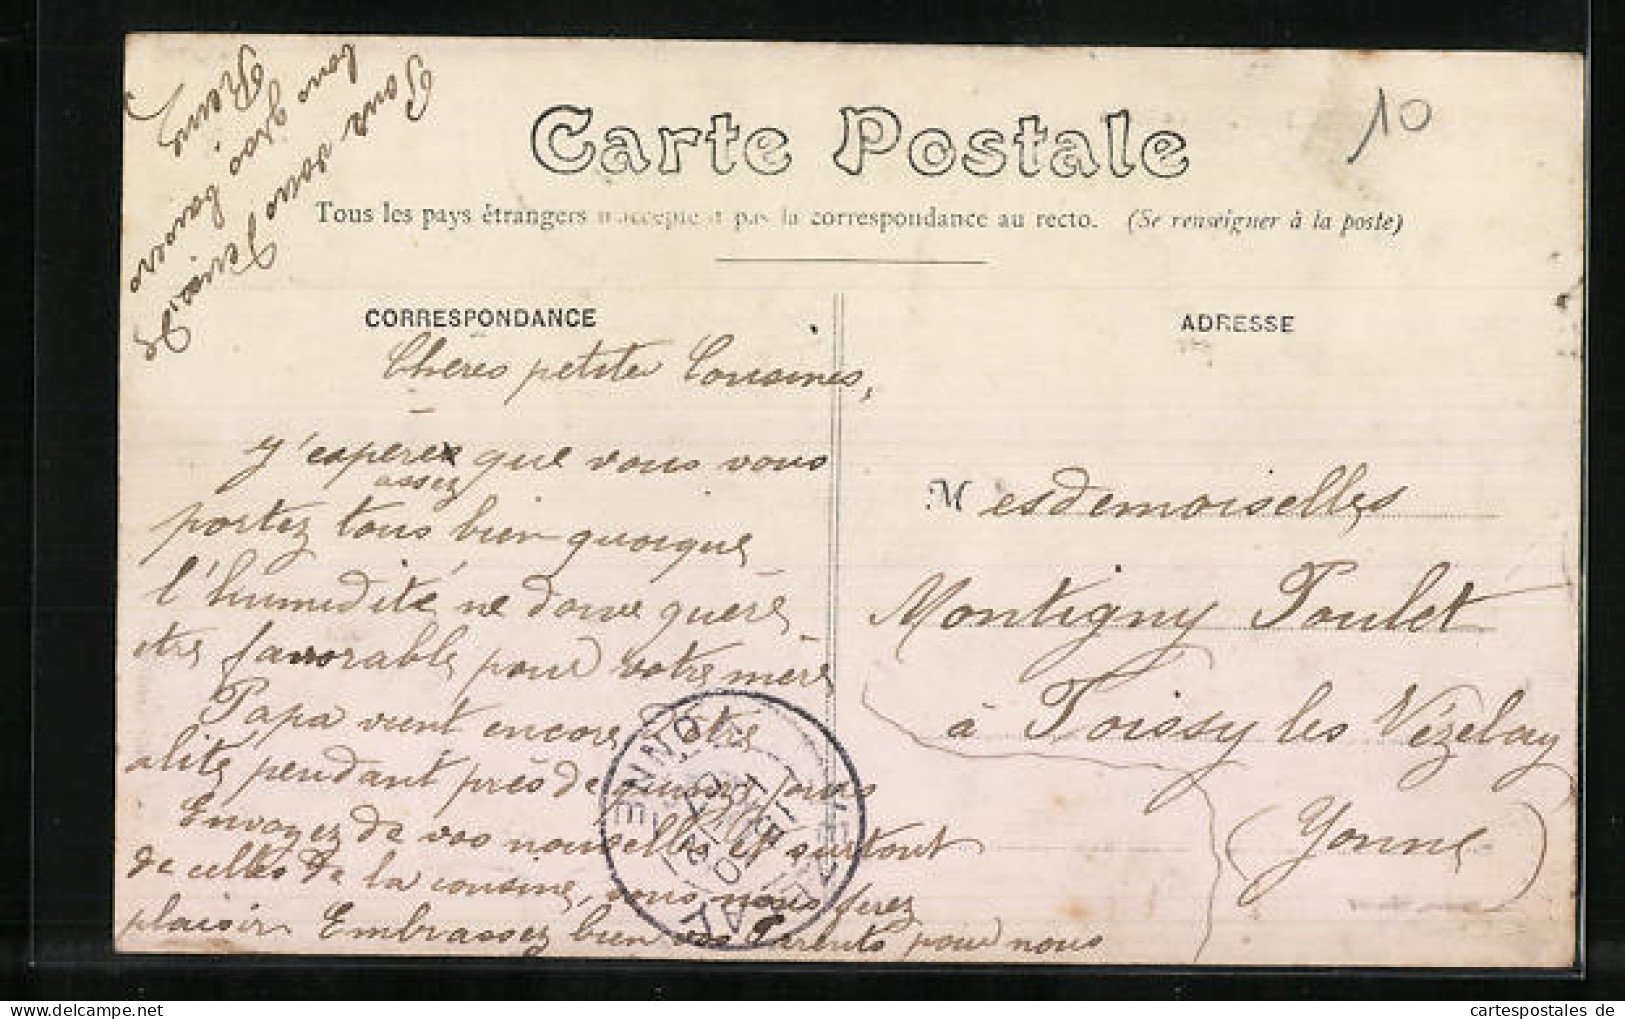 Carte Postale
Tous les pays étrangers n'acceptent pas la correspondance au recto. (Se renseigner à la poste)
10
CORRESPONDANCE
Chères petites Cousines,
J'espère que vous vous
assez
portez tous bien quoique
l'humidité ne doive guère
être favorable pour votre mère
Papa vient encore d'être
alité pendant près de jours
Envoyez de vos nouvelles et surtout
de celles de la cousine, vous nous ferez
plaisir. Embrassez bien vos Parents pour nous
Pour vous
bon gros baisers
René
ADRESSE
Mesdemoiselles
Montigny Poulet
à Foissy les Vézelay
(Yonne)
VEZELAY
YONNE
cartespostales de